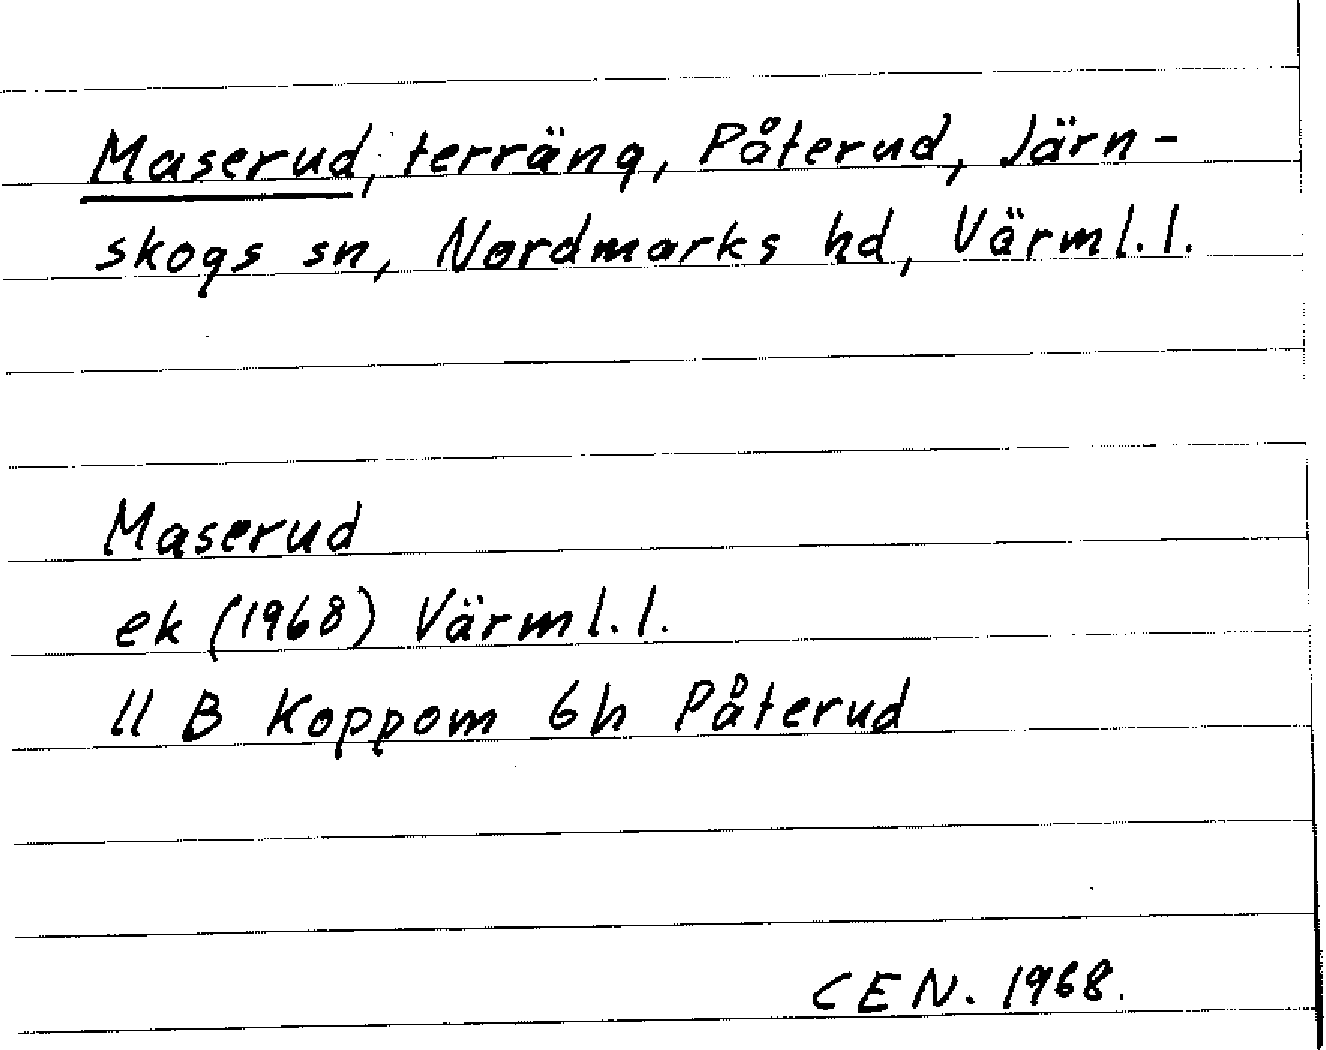 Maserud, terräng, Påterud, Järn-
skogs sn, Nordmarks hd, Värml.l.
Maserud
ek (1968) Värml.l.
11 B Koppom 6h Påterud
CEN. 1968.